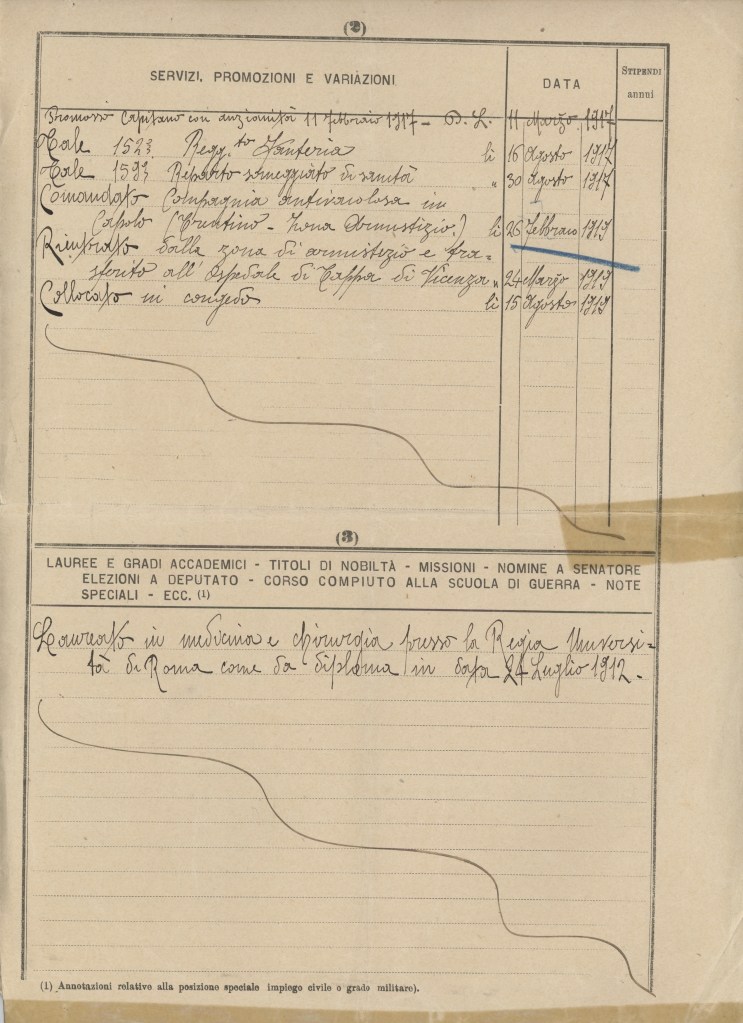 (2)
SERVIZI, PROMOZIONI E VARIAZIONI
DATA
STIPENDI
annui
Promosso Capitano con anzianità 11 febbraio 1917 - D. L. 11 Marzo 1917
Tale 152º Regg.to Fanteria li 16 Agosto 1917
Tale 159º Reparto someggiato di sanità " 30 Agosto 1917
Comandato Compagnia antivaiolosa in
(Trentino - Zona Armistizio.) li 26 Febbraio 1919
Rientrato dalla zona di armistizio e tra-
sferito all'Ospedale di Tappa di Vicenza " 24 Marzo 1919
Collocato in congedo li 15 Agosto 1919
(3)
LAUREE E GRADI ACCADEMICI - TITOLI DI NOBILTÀ - MISSIONI - NOMINE A SENATORE
ELEZIONI A DEPUTATO - CORSO COMPIUTO ALLA SCUOLA DI GUERRA - NOTE
SPECIALI - ECC. (1)
Laureato in medicina e chirurgia presso la Regia Universi-
tà di Roma come da diploma in data 24 Luglio 1912.
(1) Annotazioni relative alla posizione speciale impiego civile o grado militare).